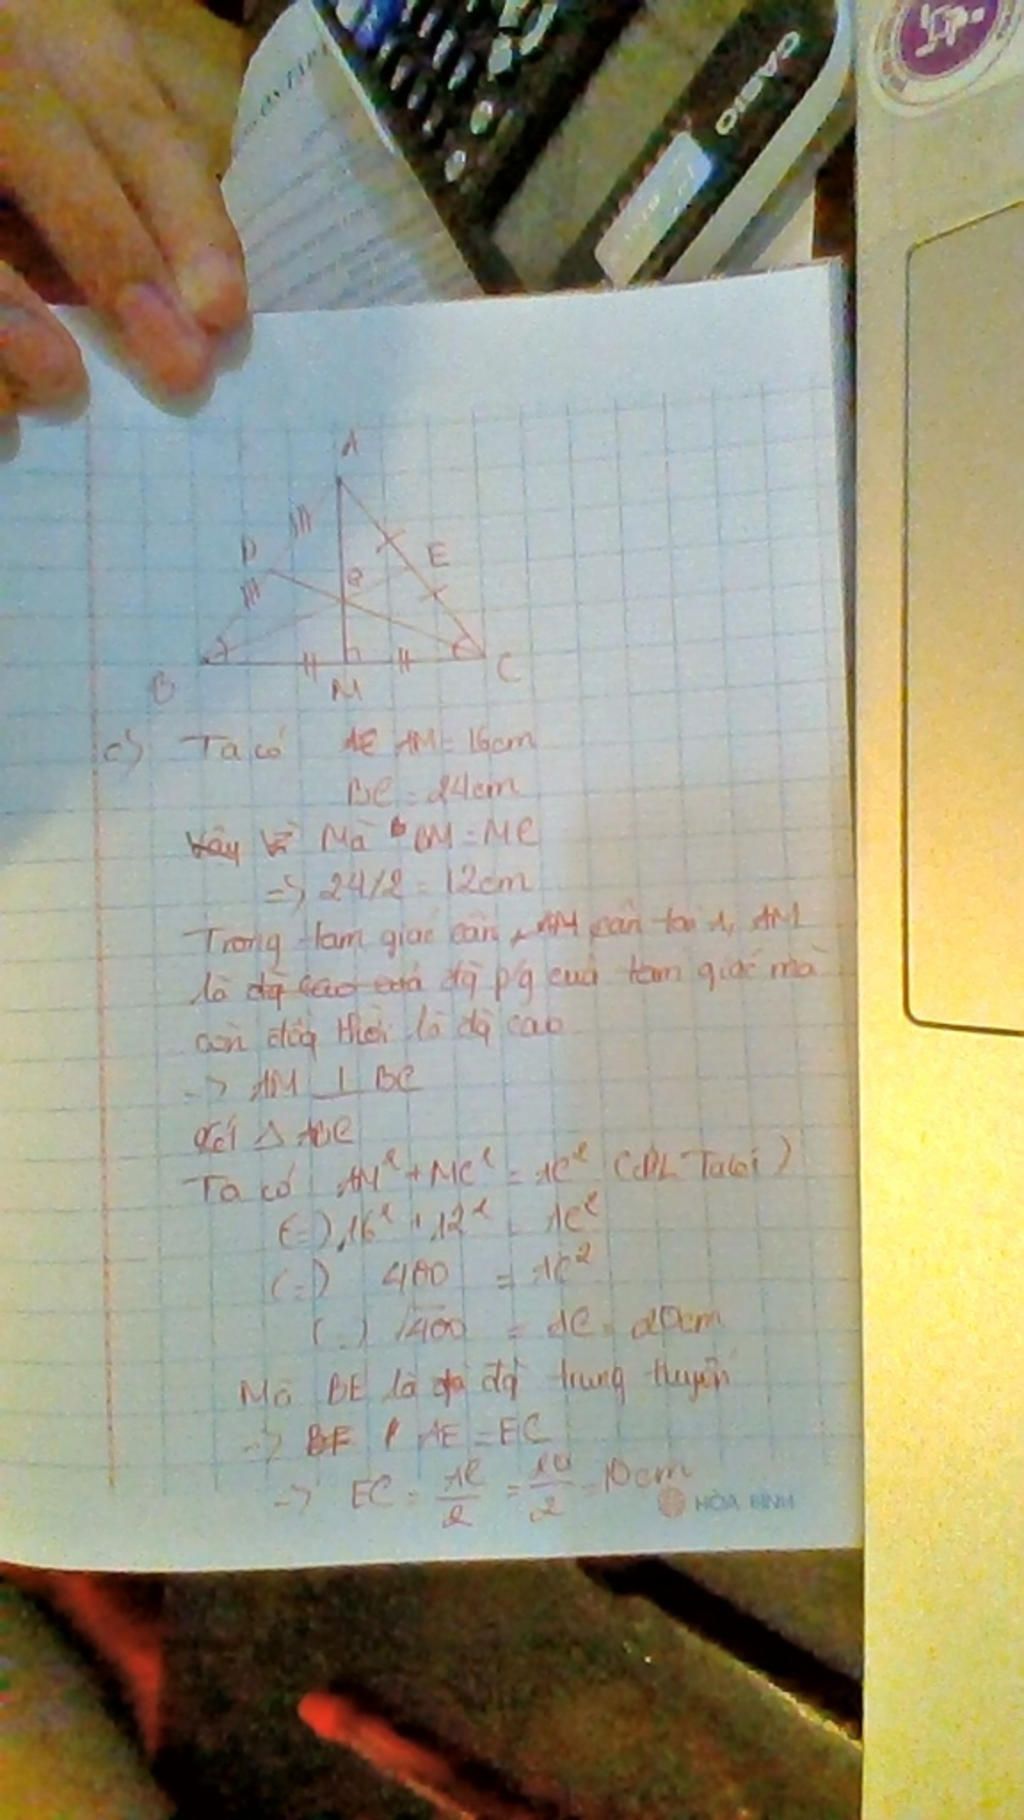 CASIO
A
D
E
B
M
C
c) Ta có AC AM = 16cm
BC = 24cm
Vậy Vì Mà BM = MC
=> 24/2 = 12cm
Trong tam giác cân AM cân tại A, AM
là đg cao của đg p/g của tam giác mà
còn đồng thời là đg cao
=> AM ⊥ BC
Xét △ ABC
Ta có AM² + MC² = AC² (ĐL Talet)
(=) 16² + 12² = AC²
(=) 400 = AC²
(=) √400 = AC = 20cm
Mà BE là đg trung tuyến
=> BE AE = EC
=> EC = AC/2 = 20/2 = 10cm
HÒA BÌNH